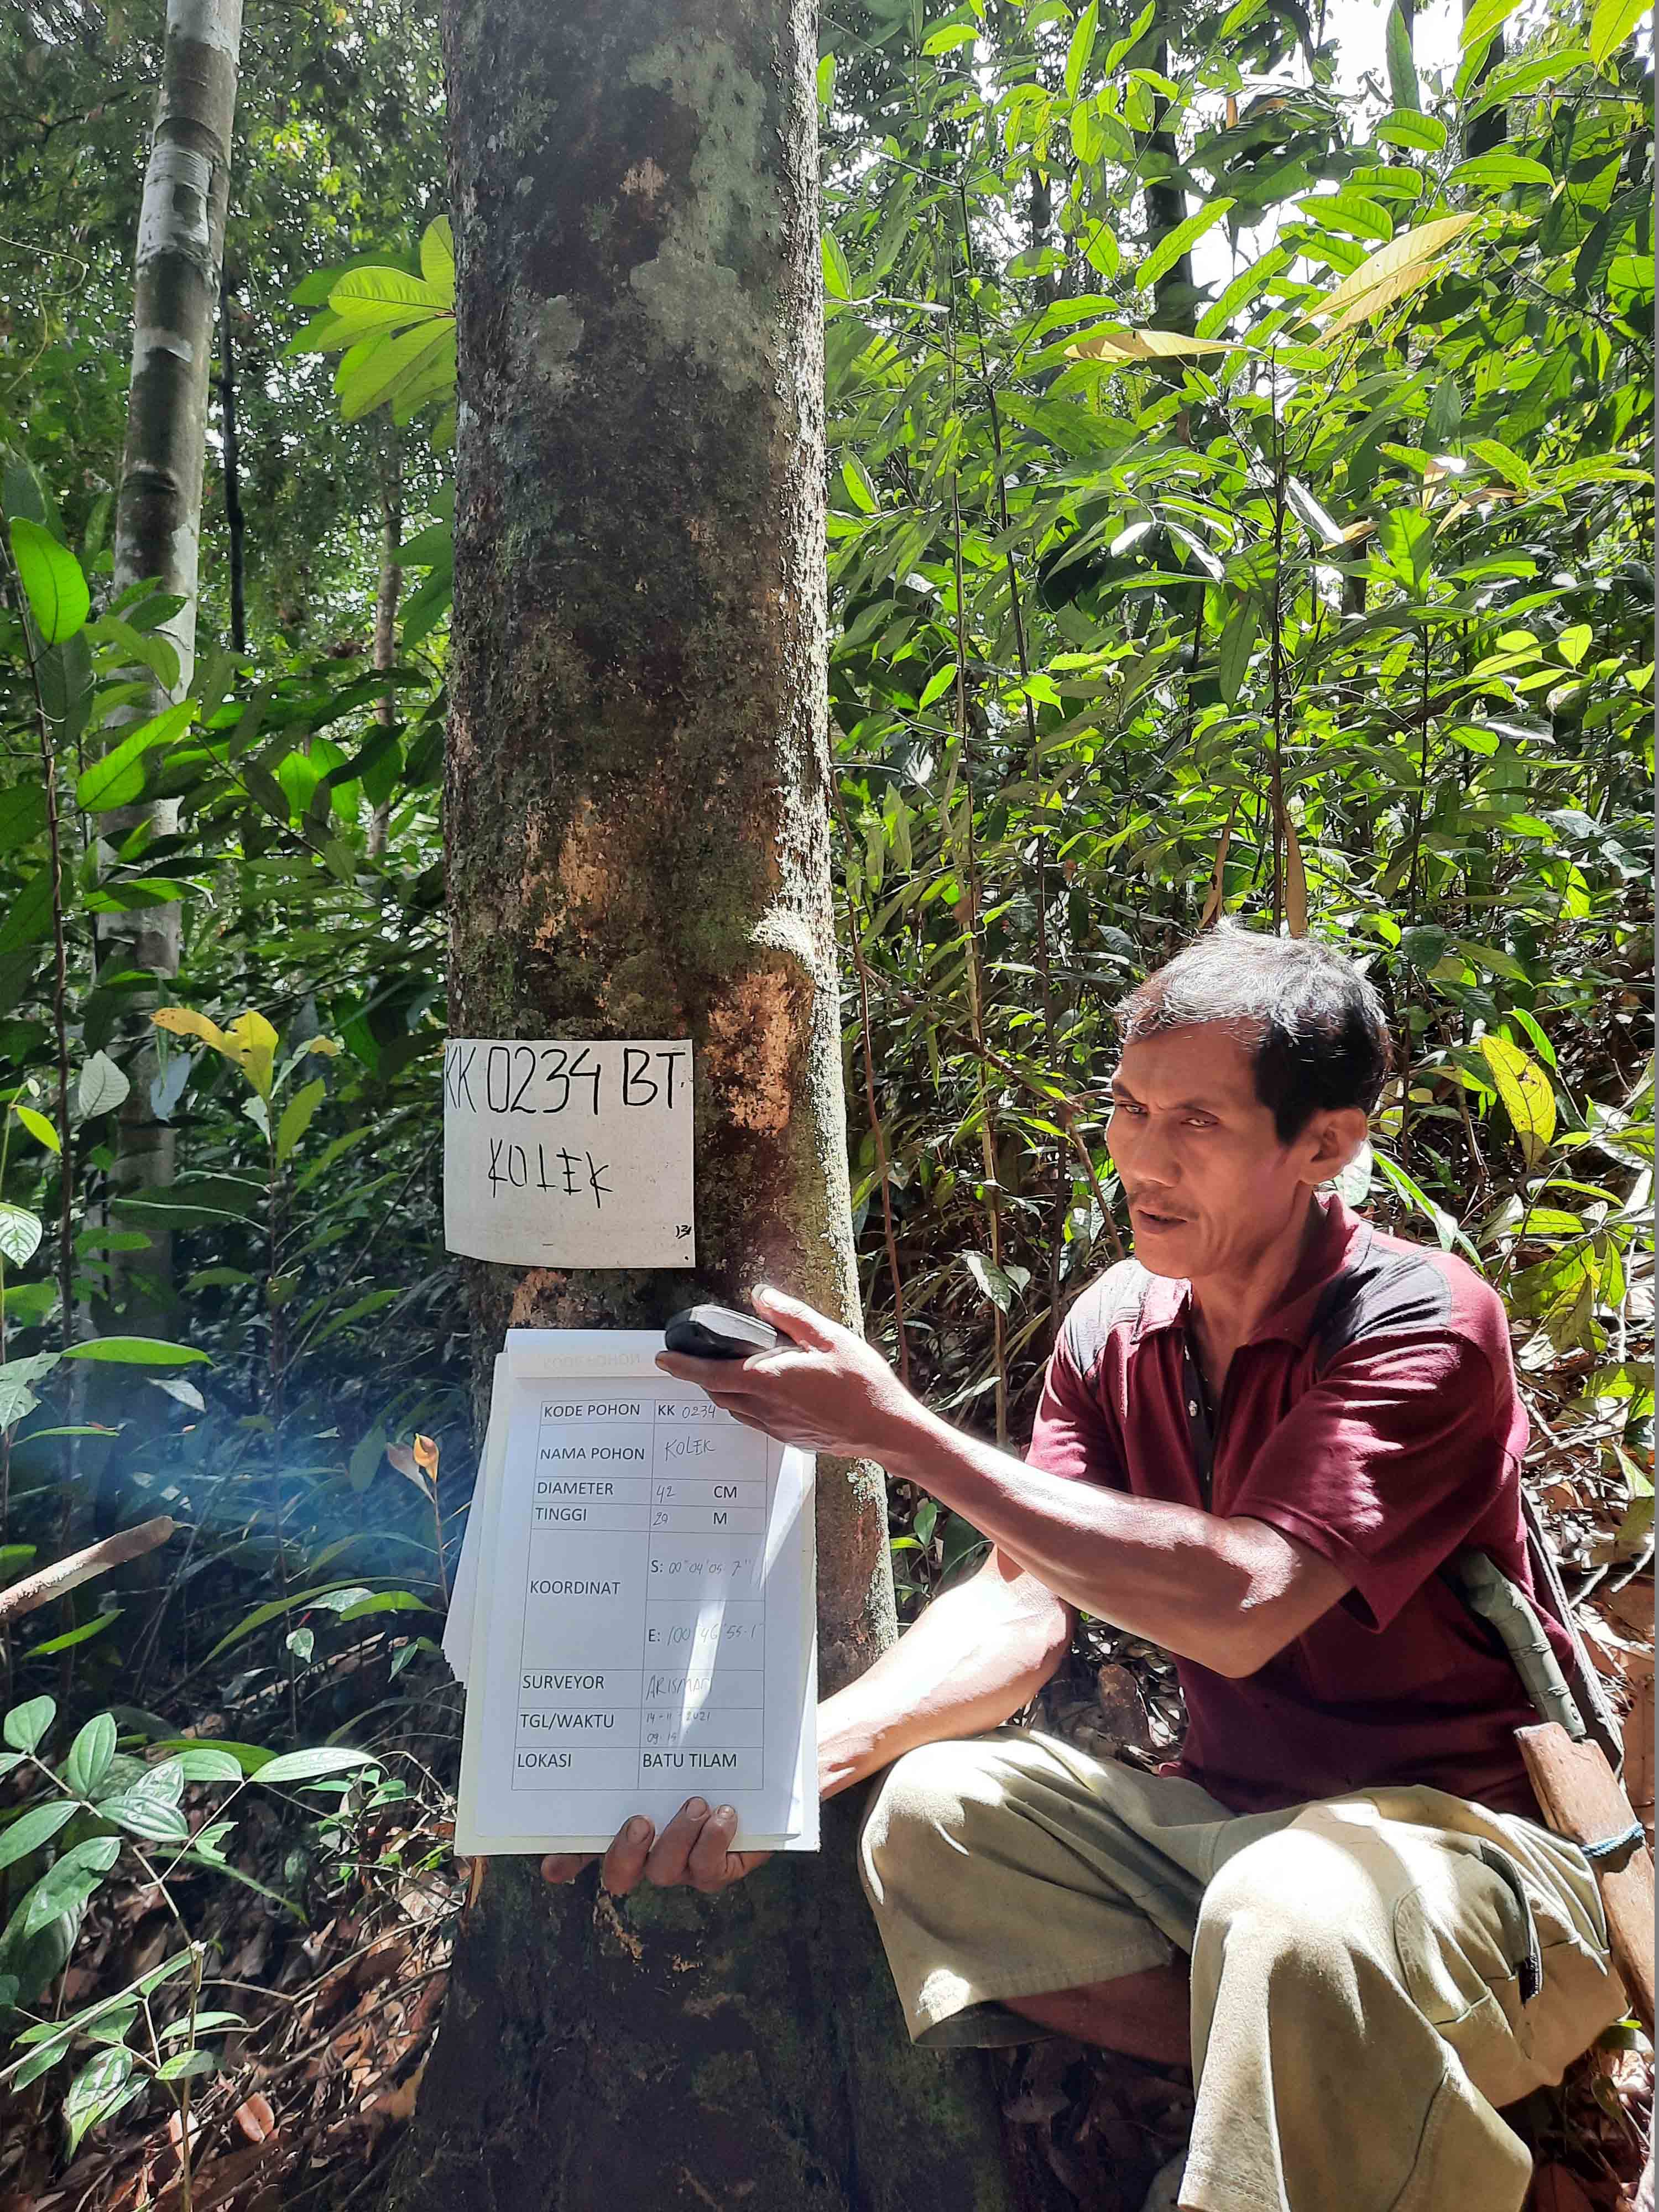 KK 0234 BT.
KOLEK
KODE POHON KK 0234
NAMA POHON KOLEK
DIAMETER 42 CM
TINGGI 29 M
KOORDINAT
S: 00°04'05 7"
E: 100 46 55.1
SURVEYOR ARISMAN
TGL/WAKTU 14-11-2021
09.15
LOKASI BATU TILAM